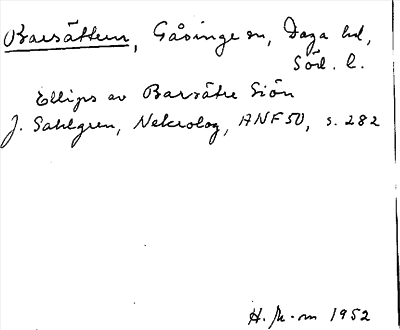 Barsättern, Gåsinge sn, Daga hd,
Söd. l.
Ellips av Barsätre Siön
J. Sahlgren, Nekrolog, ANF 50, s. 282
H. M-m 1952